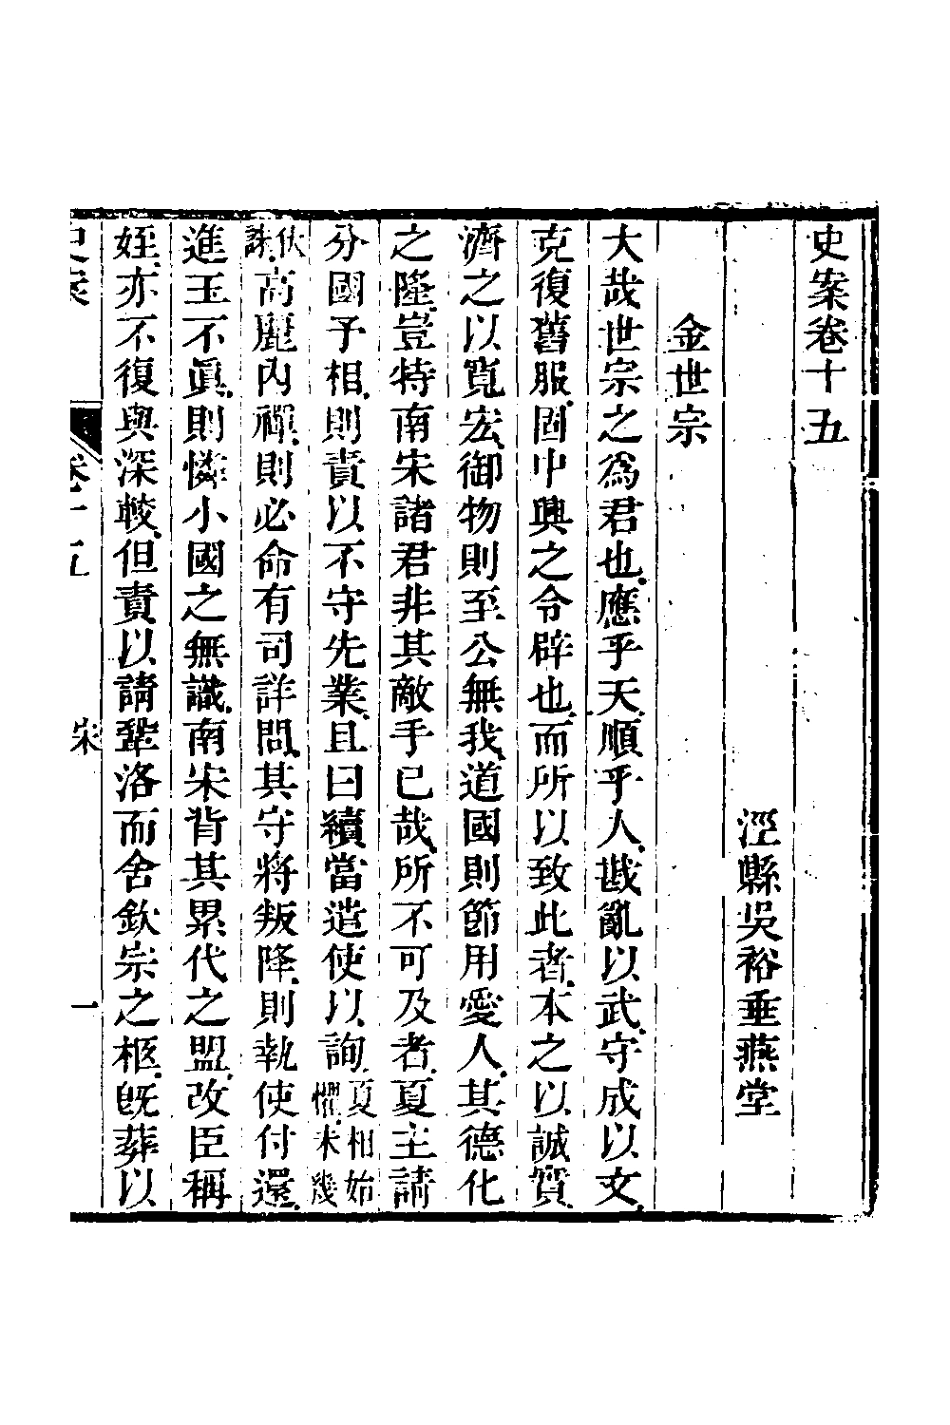 史案卷十五
涇縣吳裕垂燕堂
金世宗
大哉世宗之爲君也應乎天順乎人戡亂以武守成以文
克復舊服固中興之令辟也而所以致此者本之以誠質
濟之以寬宏御物則至公無我道國則節用愛人其德化
之隆豈特南宋諸君非其敵手已哉所不可及者夏主請
分國予相則責以不守先業且曰續當遣使以詢夏相始懼未幾
伏誅高麗內禪則必命有司詳問其守將叛降則執使付還
進玉不眞則憐小國之無識南宋背其累代之盟改臣稱
姪亦不復與深較但責以請鞏洛而舍欽宗之柩旣葬以
史案
卷十五
宋
一